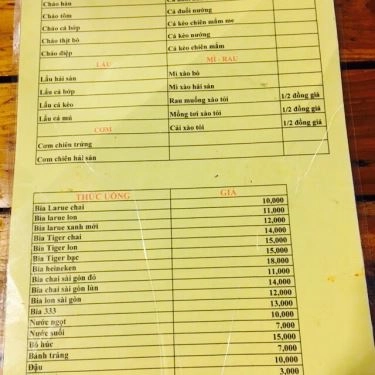 Cháo hàu
Cháo tôm Cá đuối nướng
Cháo cá bớp Cá kèo chiên mắm me
Cháo thịt bò Cá kèo nướng
Cháo điệp Cá kèo chiên mắm
LẨU MÌ - RAU
Lẩu hải sản Mì xào bò
Lẩu cá bớp Mì xào hải sản
Lẩu cá kèo Rau muống xào tỏi 1/2 đồng giá
Lẩu cá mú Mồng tơi xào tỏi 1/2 đồng giá
CƠM Cải xào tỏi 1/2 đồng giá
Cơm chiên trứng
Cơm chiên hải sản
THỨC UỐNG GIÁ
Bia Larue chai 10,000
Bia larue lon 11,000
Bia larue xanh mới 12,000
Bia Tiger chai 14,000
Bia Tiger lon 15,000
Bia Tiger bạc 15,000
Bia heineken 18,000
Bia chai sài gòn đỏ 11,000
Bia chai sài gòn lùn 14,000
Bia lon sài gòn 12,000
Bia 333 13,000
Nước ngọt 10,000
Nước suối 7,000
Bò húc 15,000
Bánh tráng 7,000
Đậu 10,000
3,000